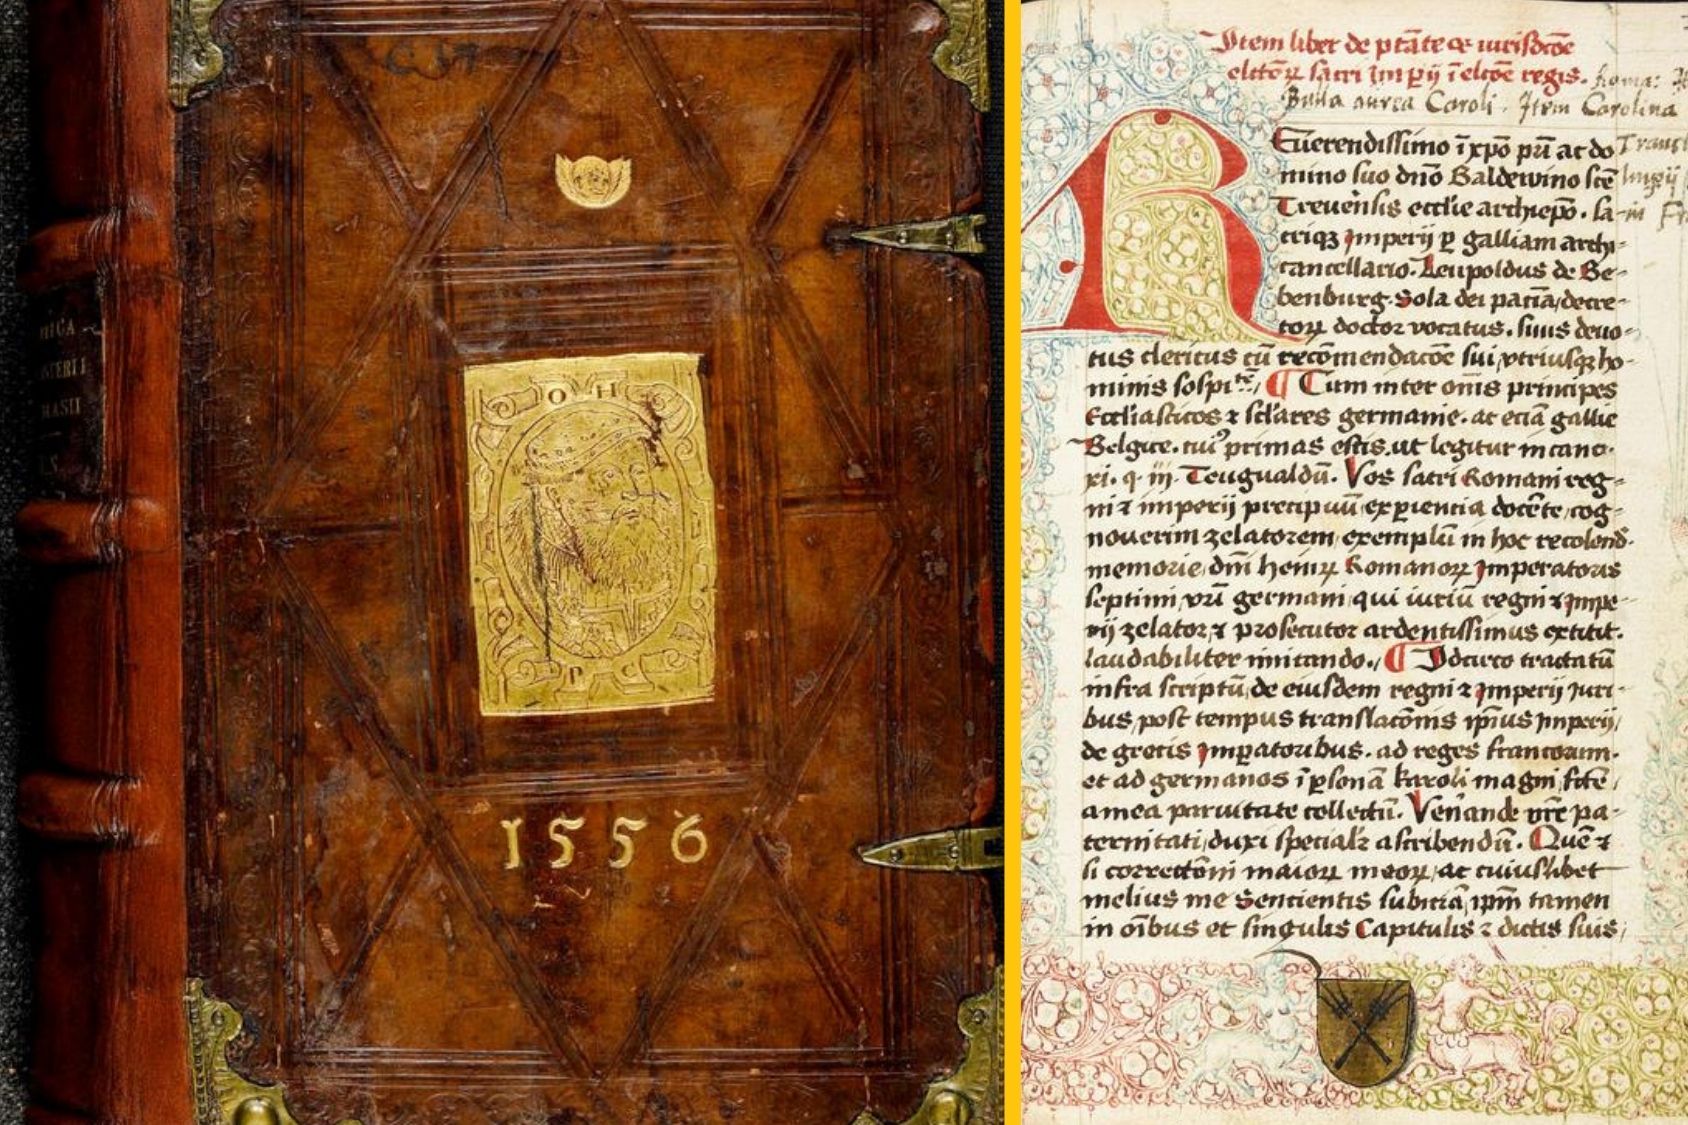 O H
P C
1556
Item liber de p̄tāte ⁊ iurisdcōe
elctōꝝ sacri Imꝑij ī elcōe regis.
Bulla aurea Caroli. Item Carolina
Euerendissimo ī xp̄o pr̄i ac do
mino suo dn̄o Baldewino scē
Treueñsis ecclie archiepō. sa-
criqꝫ Imperij ꝑ galliam archi-
cancellario. Leupoldus de Be-
benburg. Sola dei paciā, decre-
torꝝ doctor vocatus. suus deuo-
tus clericus cū recōmendacōe sui, vtriusqꝫ ho-
minis sospitē, ¶ Cum inter om̄is principes
Ecclīasticos ⁊ sclāres germanie. ac eciā gallie
Belgice. primas estis. ut legitur in cano.
xi. q. iij. Teugualdū. Vos sacri Romani reg-
ni ⁊ imperij precipuū, exꝑiencia docēte, cog-
nouerim zelatorem, exemplū in hoc recolend.
memorie, dn̄i henirꝝ Romanorꝝ Imperatoris
septimi, vr̄i germani, qui iuriū regni ⁊ Impe-
rij zelator, ⁊ prosecutor ardentissimus extitit.
laudabiliter imitando., ¶ Idcirco tractatū
infra scriptū, de eiusdem regni ⁊ Imperij Juri-
bus, post tempus translacōnis ip̄ius Imperij,
de grecis Imꝑatoribus. ad reges francorum.
et ad germanos ī ꝑsonā karoli magni fctē,
a mea paruitate collectū. Veñande vr̄e pa-
ternitati, duxi specialr̄ ascribendū. Quē ⁊
si correctōni maiorꝝ meorꝝ, ac cuiuslibet
melius me Sencientis subiciā, ip̄m tamen
in oībus et singulis Capitulis ⁊ dictis suis,